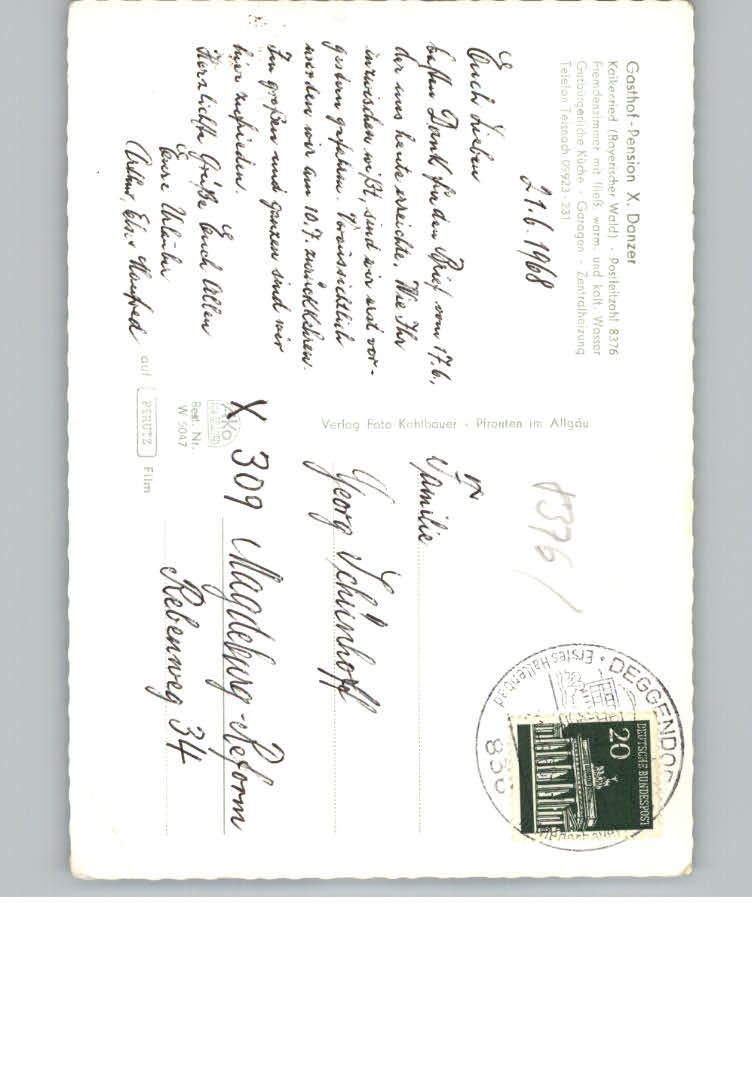 Gasthof-Pension X. Danzer
Kaikenried (Bayerischer Wald) · Postleitzahl 8376
Fremdenzimmer mit fließ. warm. und kalt. Wasser
Gutbürgerliche Küche · Garagen · Zentralheizung
Telefon Teisnach 09923-231
21.6.1968
Euch Lieben
besten Dank für den Brief vom 17.6,
der uns heute erreichte. Wie Ihr
inzwischen wißt, sind wir erst vor-
gestern gefahren. Voraussichtlich
werden wir am 10.7. zurückkehren.
Im großen und ganzen sind wir
hier zufrieden.
Herzlichste Grüße Euch Allen
Eure Urlauber
Arthur, Els. Manfred
Verlag Foto Kohlbauer - Pfronten im Allgäu
AKO
Best. Nr.
W 5047
auf PERUTZ Film
8376/
DEGGENDORF
Erstes Hallenbad
836
DEUTSCHE BUNDESPOST
20
Familie
Georg Schünhoff
X 309 Magdeburg-Reform
Rebenweg 34